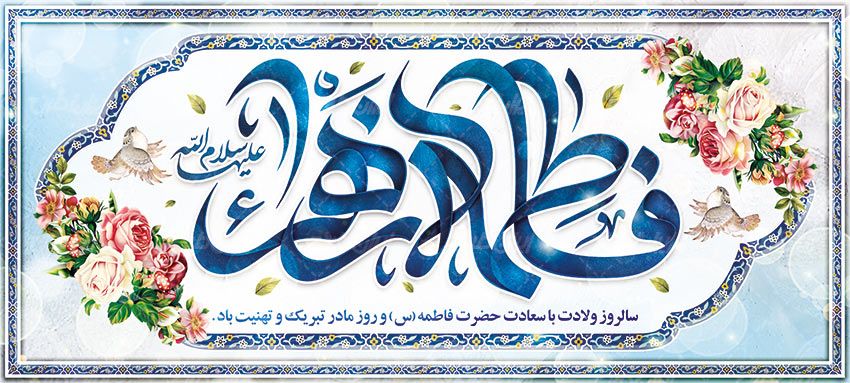 فاطمة الزهراء
علیها سلام الله
سالروز ولادت با سعادت حضرت فاطمه (س) و روز مادر تبریک و تهنیت باد.